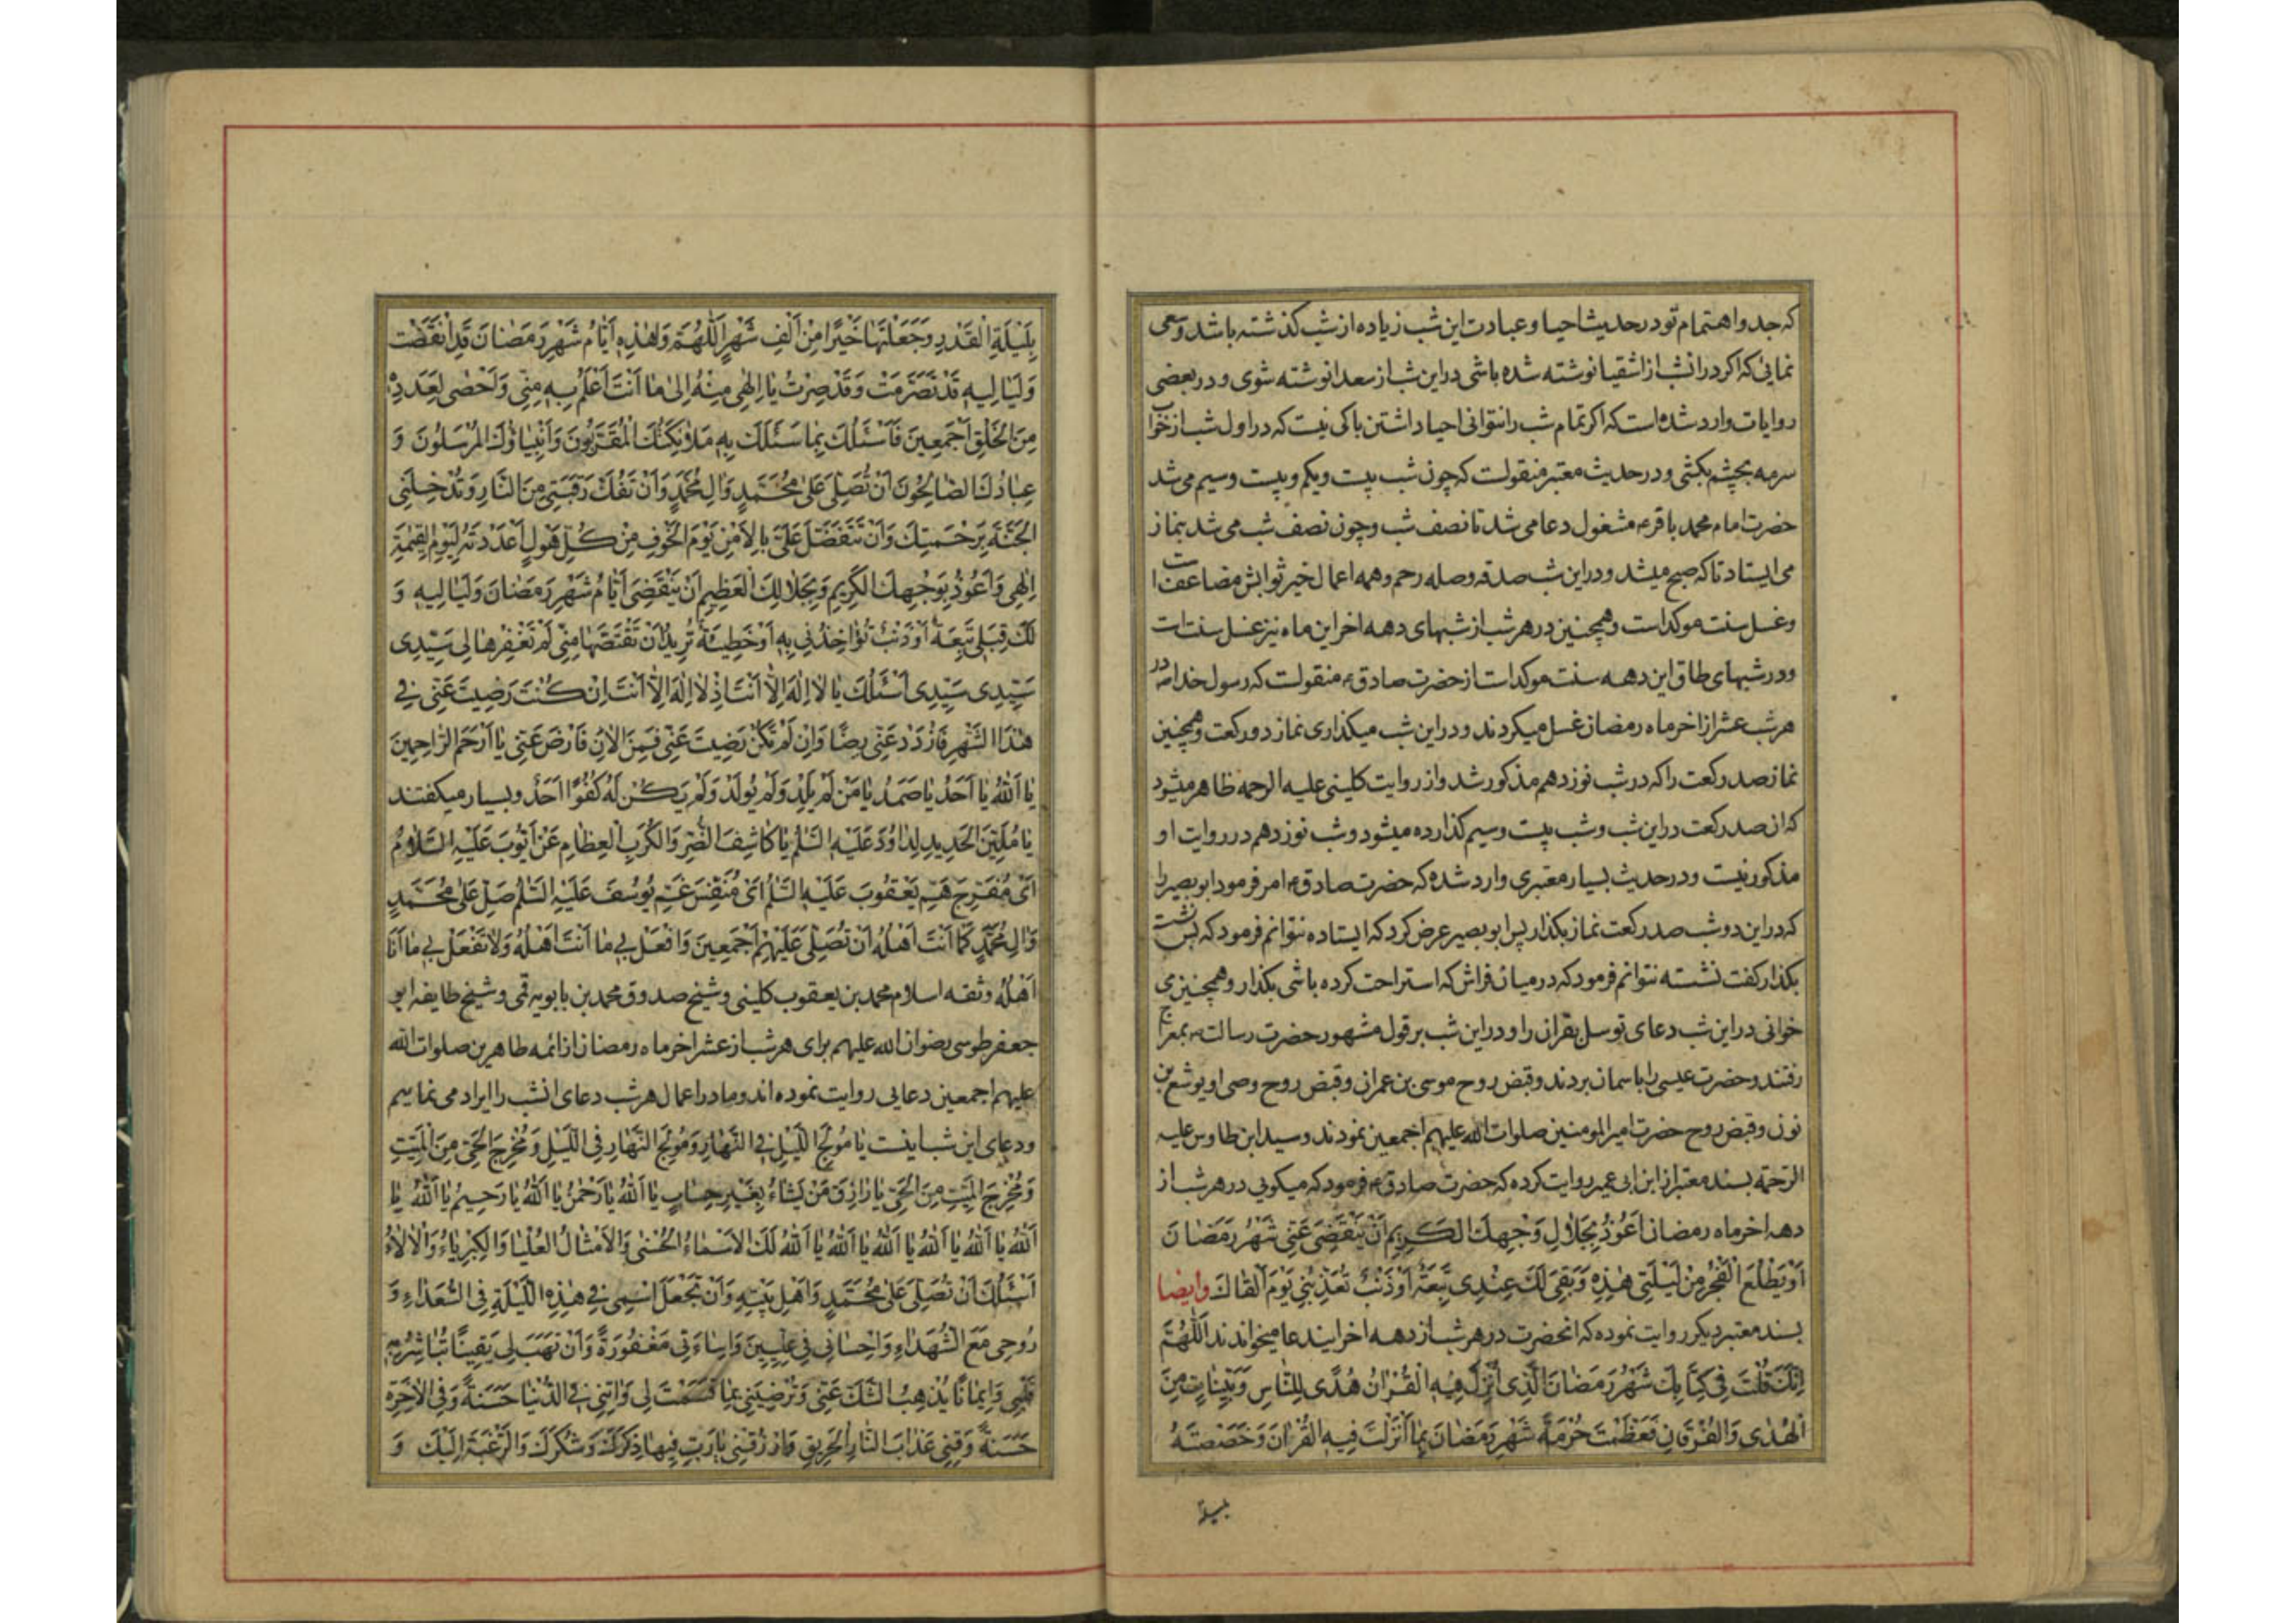 که جد و اهتمام تو در حدیث احیا و عبادت این شب زیاده از شب کذشته باشد و سعی
نمایی که اکر در انشب از اشقیا نوشته شده باشی در این شب از سعدا نوشته شوی و در بعضی
روایات وارد شده است که اکر تمام شب را نتوانی احیا داشتن باکی نیست که در اول شب از خواب
سرمه بچشم بکشی و در حدیث معتبر منقولست که چون شب بیست و یکم و بیست و سیم می شد
حضرت امام محمد باقر ع مشغول دعا می شد تا نصف شب و چون نصف شب می شد بنماز
می ایستاد تا که صبح میشد و در این شب صدقه و صله رحم و همه اعمال خیر ثوابش مضاعف است
و غسل سنت موکد است و همچنین در هر شب از شبهای دهه اخر این ماه نیز غسل سنت است
و در شبهای طاق این دهه سنت موکد است از حضرت صادق ع منقولست که رسول خدا ص در
هر شب عشر از اخر ماه رمضان غسل میکردند و در این شب میکذاری نماز دو رکعت و همچنین
نماز صد رکعت را که در شب نوزدهم مذکور شد و از روایت کلینی علیه الرحمه ظاهر میشود
که ان صد رکعت در این شب و شب بیست و سیم کذارده میشود و شب نوزدهم در روایت او
مذکور نیست و در حدیث بسیار معتبری وارد شده که حضرت صادق ع امر فرمود ابو بصیر را
که در این دو شب صد رکعت نماز بکذار پس ابو بصیر عرض کرد که ایستاده نتوانم فرمود که پس نشسته
بکذار کفت نشسته نتوانم فرمود که در میان فراش که استراحت کرده باشی بکذار و همچنین می
خوانی در این شب دعای توسل بقران را و در این شب بر قول مشهور حضرت رسالت ص بمعراج
رفتند و حضرت عیسی را باسمان بردند و قبض روح موسی بن عمران و قبض روح وصی او یوشع بن
نون و قبض روح حضرت امیر المومنین صلوات الله علیهم اجمعین نمودند و سید ابن طاوس علیه
الرحمة بسند معتبر از ابن ابی عمیر روایت کرده که حضرت صادق ع فرمود که میکویی در هر شب از
دهه اخر ماه رمضان اَعُوذُ بِجَلالِ وَجْهِكَ الكَرِيمِ اَنْ يَنْقَضِىَ عَنّى شَهْرُ رَمَضانَ
اَوْ يَطْلُعَ الْفَجْرُ مِنْ لَيْلَتى هٰذِهِ وَ بَقِىَ لَكَ عِنْدِى تَبِعَةٌ اَوْ ذَنْبٌ تُعَذِّبُنى يَوْمَ اَلْقاكَ و ایضا
بسند معتبر دیکر روایت نموده که انحضرت در هر شب از دهه اخر ایندعا میخواندند اَللّٰهُمَّ
اِنَّكَ قُلْتَ فى كِتابِكَ شَهْرُ رَمَضانَ الَّذى اُنْزِلَ فيهِ الْقُرْانُ هُدًى لِلنّاسِ وَ بَيِّناتٍ مِنَ
الْهُدٰى وَ الْفُرْقانِ فَعَظَّمْتَ حُرْمَةَ شَهْرِ رَمَضانَ بِما اَنْزَلْتَ فيهِ الْقُرْانَ وَ خَصَصْتَهُ
بلیلة
بِلَيْلَةِ الْقَدْرِ وَ جَعَلْتَها خَيْرًا مِنْ اَلْفِ شَهْرٍ اَللّٰهُمَّ وَ هٰذِهِ اَيّامُ شَهْرِ رَمَضانَ قَدِ انْقَضَتْ
وَ لَياليهِ قَدْ تَصَرَّمَتْ وَ قَدْ صِرْتُ يا اِلٰهى مِنْهُ اِلىٰ ما اَنْتَ اَعْلَمُ بِهِ مِنّى وَ اَحْصٰى لِعَدَدِهِ
مِنَ الْخَلْقِ اَجْمَعينَ فَاَسْئَلُكَ بِما سَئَلَكَ بِهِ مَلٰئِكَتُكَ الْمُقَرَّبُونَ وَ اَنْبِياؤُكَ الْمُرْسَلُونَ وَ
عِبادُكَ الصّالِحُونَ اَنْ تُصَلِّىَ عَلىٰ مُحَمَّدٍ وَ الِ مُحَمَّدٍ وَ اَنْ تَفُكَّ رَقَبَتى مِنَ النّارِ وَ تُدْخِلَنى
الْجَنَّةَ بِرَحْمَتِكَ وَ اَنْ تَتَفَضَّلَ عَلَىَّ بِالاَمْنِ يَوْمَ الْخَوْفِ مِنْ كُلِّ هَوْلٍ اَعْدَدْتَهُ لِيَوْمِ الْقِيٰمَةِ
اِلٰهى وَ اَعُوذُ بِوَجْهِكَ الْكَريمِ وَ بِجَلالِكَ الْعَظيمِ اَنْ يَنْقَضِىَ اَيّامُ شَهْرِ رَمَضانَ وَ لَياليهِ وَ
لَكَ قِبَلى تَبِعَةٌ اَوْ ذَنْبٌ تُؤاخِذُنى بِهِ اَوْ خَطيئَةٌ تُريدُ اَنْ تَقْتَصَّها مِنّى لَمْ تَغْفِرْها لى سَيِّدى
سَيِّدى سَيِّدى اَسْئَلُكَ يا لا اِلٰهَ اِلّا اَنْتَ اِذْ لا اِلٰهَ اِلّا اَنْتَ اِنْ كُنْتَ رَضيتَ عَنّى فى
هٰذَا الشَّهْرِ فَازْدَدْ عَنّى رِضًا وَ اِنْ لَمْ تَكُنْ رَضيتَ عَنّى فَمِنَ الْانِ فَارْضَ عَنّى يا اَرْحَمَ الرّاحِمينَ
يا اَللهُ يا اَحَدُ يا صَمَدُ يا مَنْ لَمْ يَلِدْ وَ لَمْ يُولَدْ وَ لَمْ يَكُنْ لَهُ كُفُوًا اَحَدٌ و بسیار میکفتند
يا مُلَيِّنَ الْحَديدِ لِداوُدَ عَلَيْهِ السَّلٰمُ يا كاشِفَ الضُّرِّ وَ الْكُرَبِ الْعِظامِ عَنْ اَيُّوبَ عَلَيْهِ السَّلامُ
اَىْ مُفَرِّجَ هَمِّ يَعْقُوبَ عَلَيْهِ السَّلٰمُ اَىْ مُنَفِّسَ غَمِّ يُوسُفَ عَلَيْهِ السَّلٰمُ صَلِّ عَلىٰ مُحَمَّدٍ
وَ الِ مُحَمَّدٍ كَما اَنْتَ اَهْلُهُ اَنْ تُصَلِّىَ عَلَيْهِمْ اَجْمَعينَ وَ افْعَلْ بى ما اَنْتَ اَهْلُهُ وَ لا تَفْعَلْ بى ما اَنَا
اَهْلُهُ و ثقه اسلام محمد بن یعقوب کلینی و شیخ صدوق محمد بن بابویه قمی و شیخ طایفه ابو
جعفر طوسی رضوان الله علیهم برای هر شب از عشر اخر ماه رمضان از ائمه طاهرین صلوات الله
علیهم اجمعین دعایی روایت نموده اند و ما در اعمال هر شب دعای انشب را ایراد می نماییم
و دعای این شب اینست يا مُولِجَ اللَّيْلِ فِى النَّهارِ وَ مُولِجَ النَّهارِ فِى اللَّيْلِ وَ مُخْرِجَ الْحَىِّ مِنَ الْمَيِّتِ
وَ مُخْرِجَ الْمَيِّتِ مِنَ الْحَىِّ يا رازِقَ مَنْ يَشاءُ بِغَيْرِ حِسابٍ يا اَللهُ يا رَحْمٰنُ يا اَللهُ يا رَحيمُ يا اَللهُ يا
اَللهُ يا اَللهُ يا اَللهُ يا اَللهُ يا اَللهُ يا اَللهُ لَكَ الْاَسْماءُ الْحُسْنىٰ وَ الْاَمْثالُ الْعُلْيا وَ الْكِبْرِياءُ وَ الْالاءُ
اَسْئَلُكَ اَنْ تُصَلِّىَ عَلىٰ مُحَمَّدٍ وَ اَهْلِ بَيْتِهِ وَ اَنْ تَجْعَلَ اسْمى فى هٰذِهِ اللَّيْلَةِ فِى السُّعَداءِ وَ
رُوحى مَعَ الشُّهَداءِ وَ اِحْسانى فى عِلِّيّينَ وَ اِساءَتى مَغْفُورَةً وَ اَنْ تَهَبَ لى يَقينًا تُباشِرُ بِهِ
قَلْبى وَ ايمانًا يُذْهِبُ الشَّكَّ عَنّى وَ تُرْضِيَنى بِما قَسَمْتَ لى وَ اتِنى فِى الدُّنْيا حَسَنَةً وَ فِى الْاخِرَةِ
حَسَنَةً وَ قِنى عَذابَ النّارِ الْحَريقِ وَ ارْزُقْنى يا رَبِّ فيها ذِكْرَكَ وَ شُكْرَكَ وَ الرَّغْبَةَ اِلَيْكَ وَ